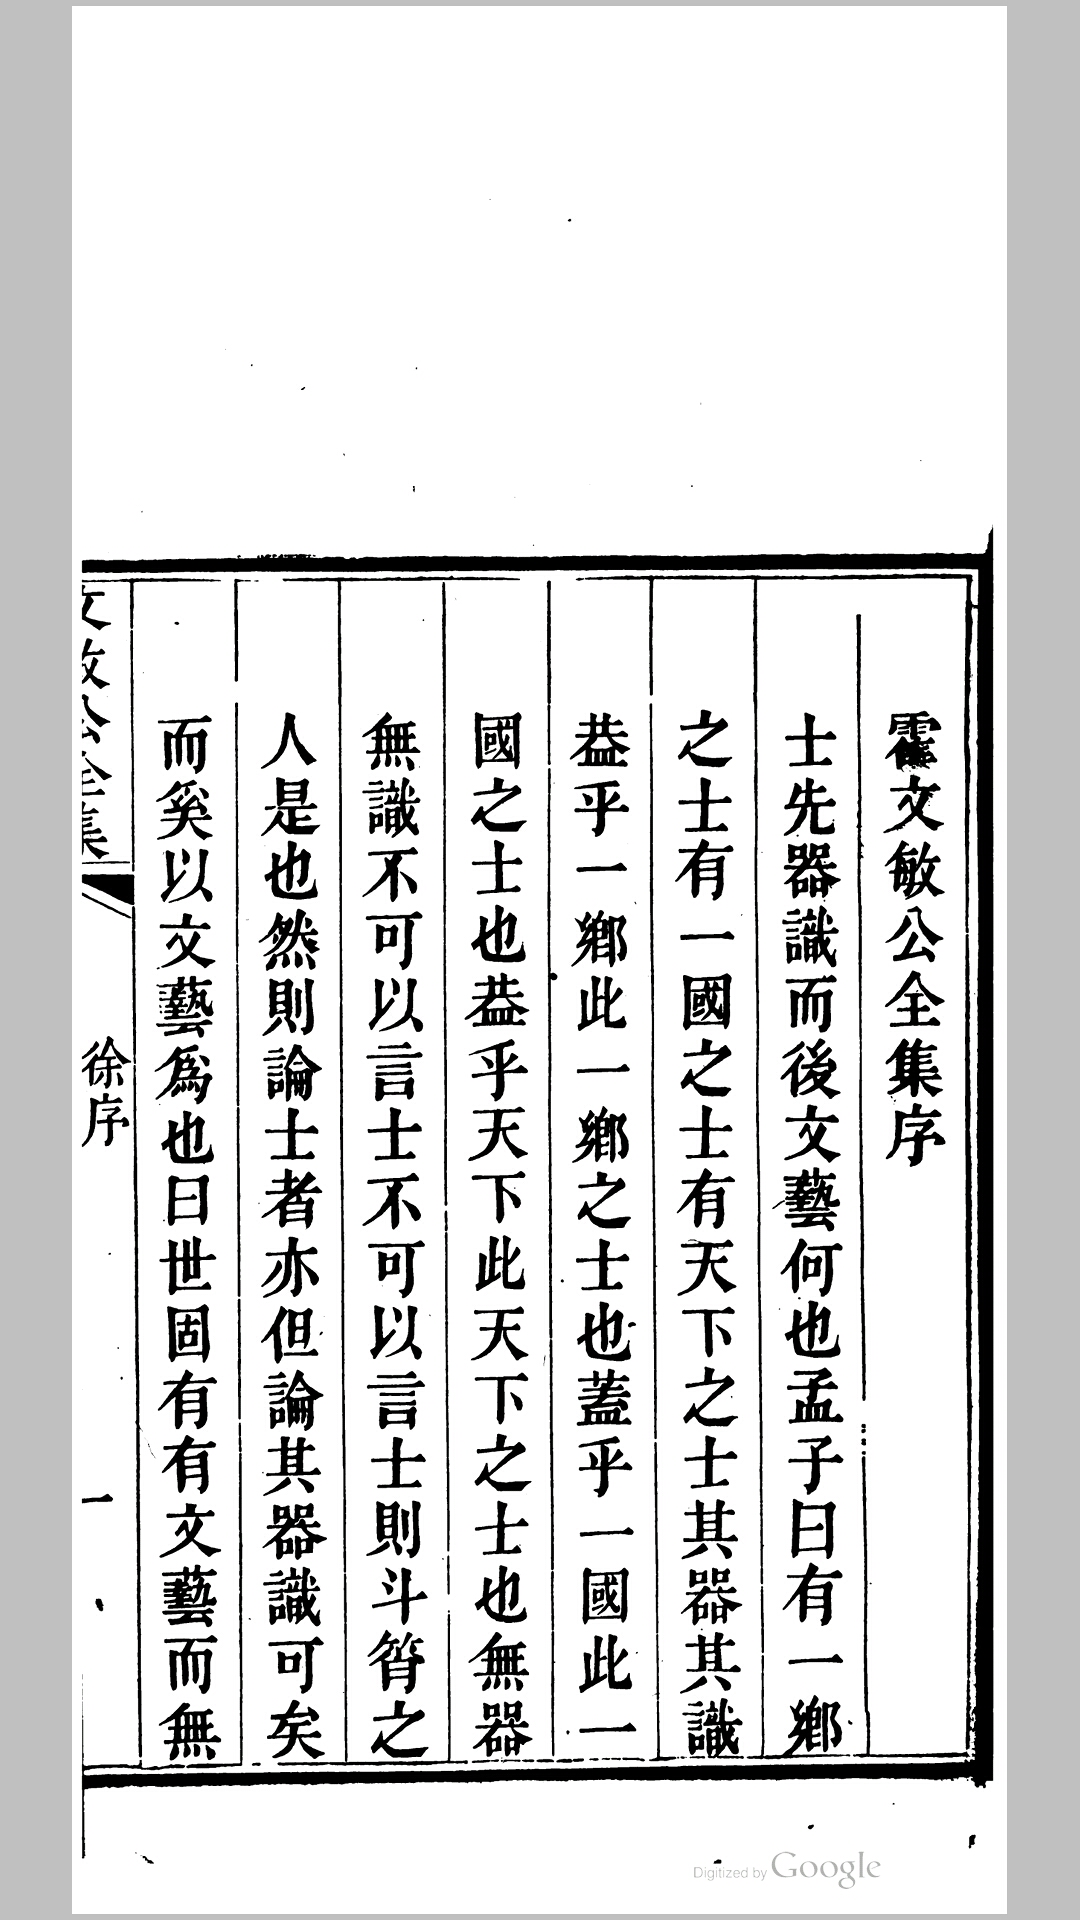 霍文敏公全集序
士先器識而後文藝何也孟子曰有一鄉
之士有一國之士有天下之士其器其識
葢乎一鄉此一鄉之士也蓋乎一國此一
國之士也葢乎天下此天下之士也無器
無識不可以言士不可以言士則斗筲之
人是也然則論士者亦但論其器識可矣
而奚以文藝爲也曰世固有有文藝而無
文敏公全集
徐序
一
Digitized by Google